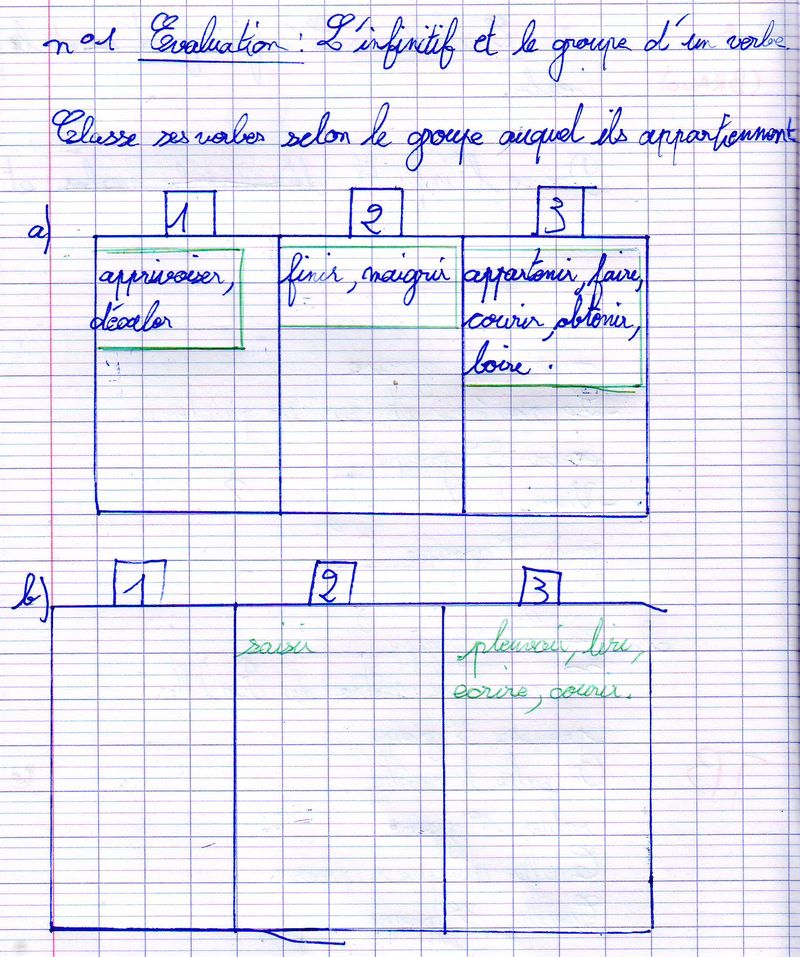 n°1 Evaluation : L'infinitif et le groupe d'un verbe.
Classe ses verbes selon le groupe auquel ils appartiennent
a) 1 2 3
apprivoiser, finir, maigrir appartenir, faire,
décaler courir, obtenir,
boire.
b) 1 2 3
saisir pleuvoir, lire,
écrire, courir.